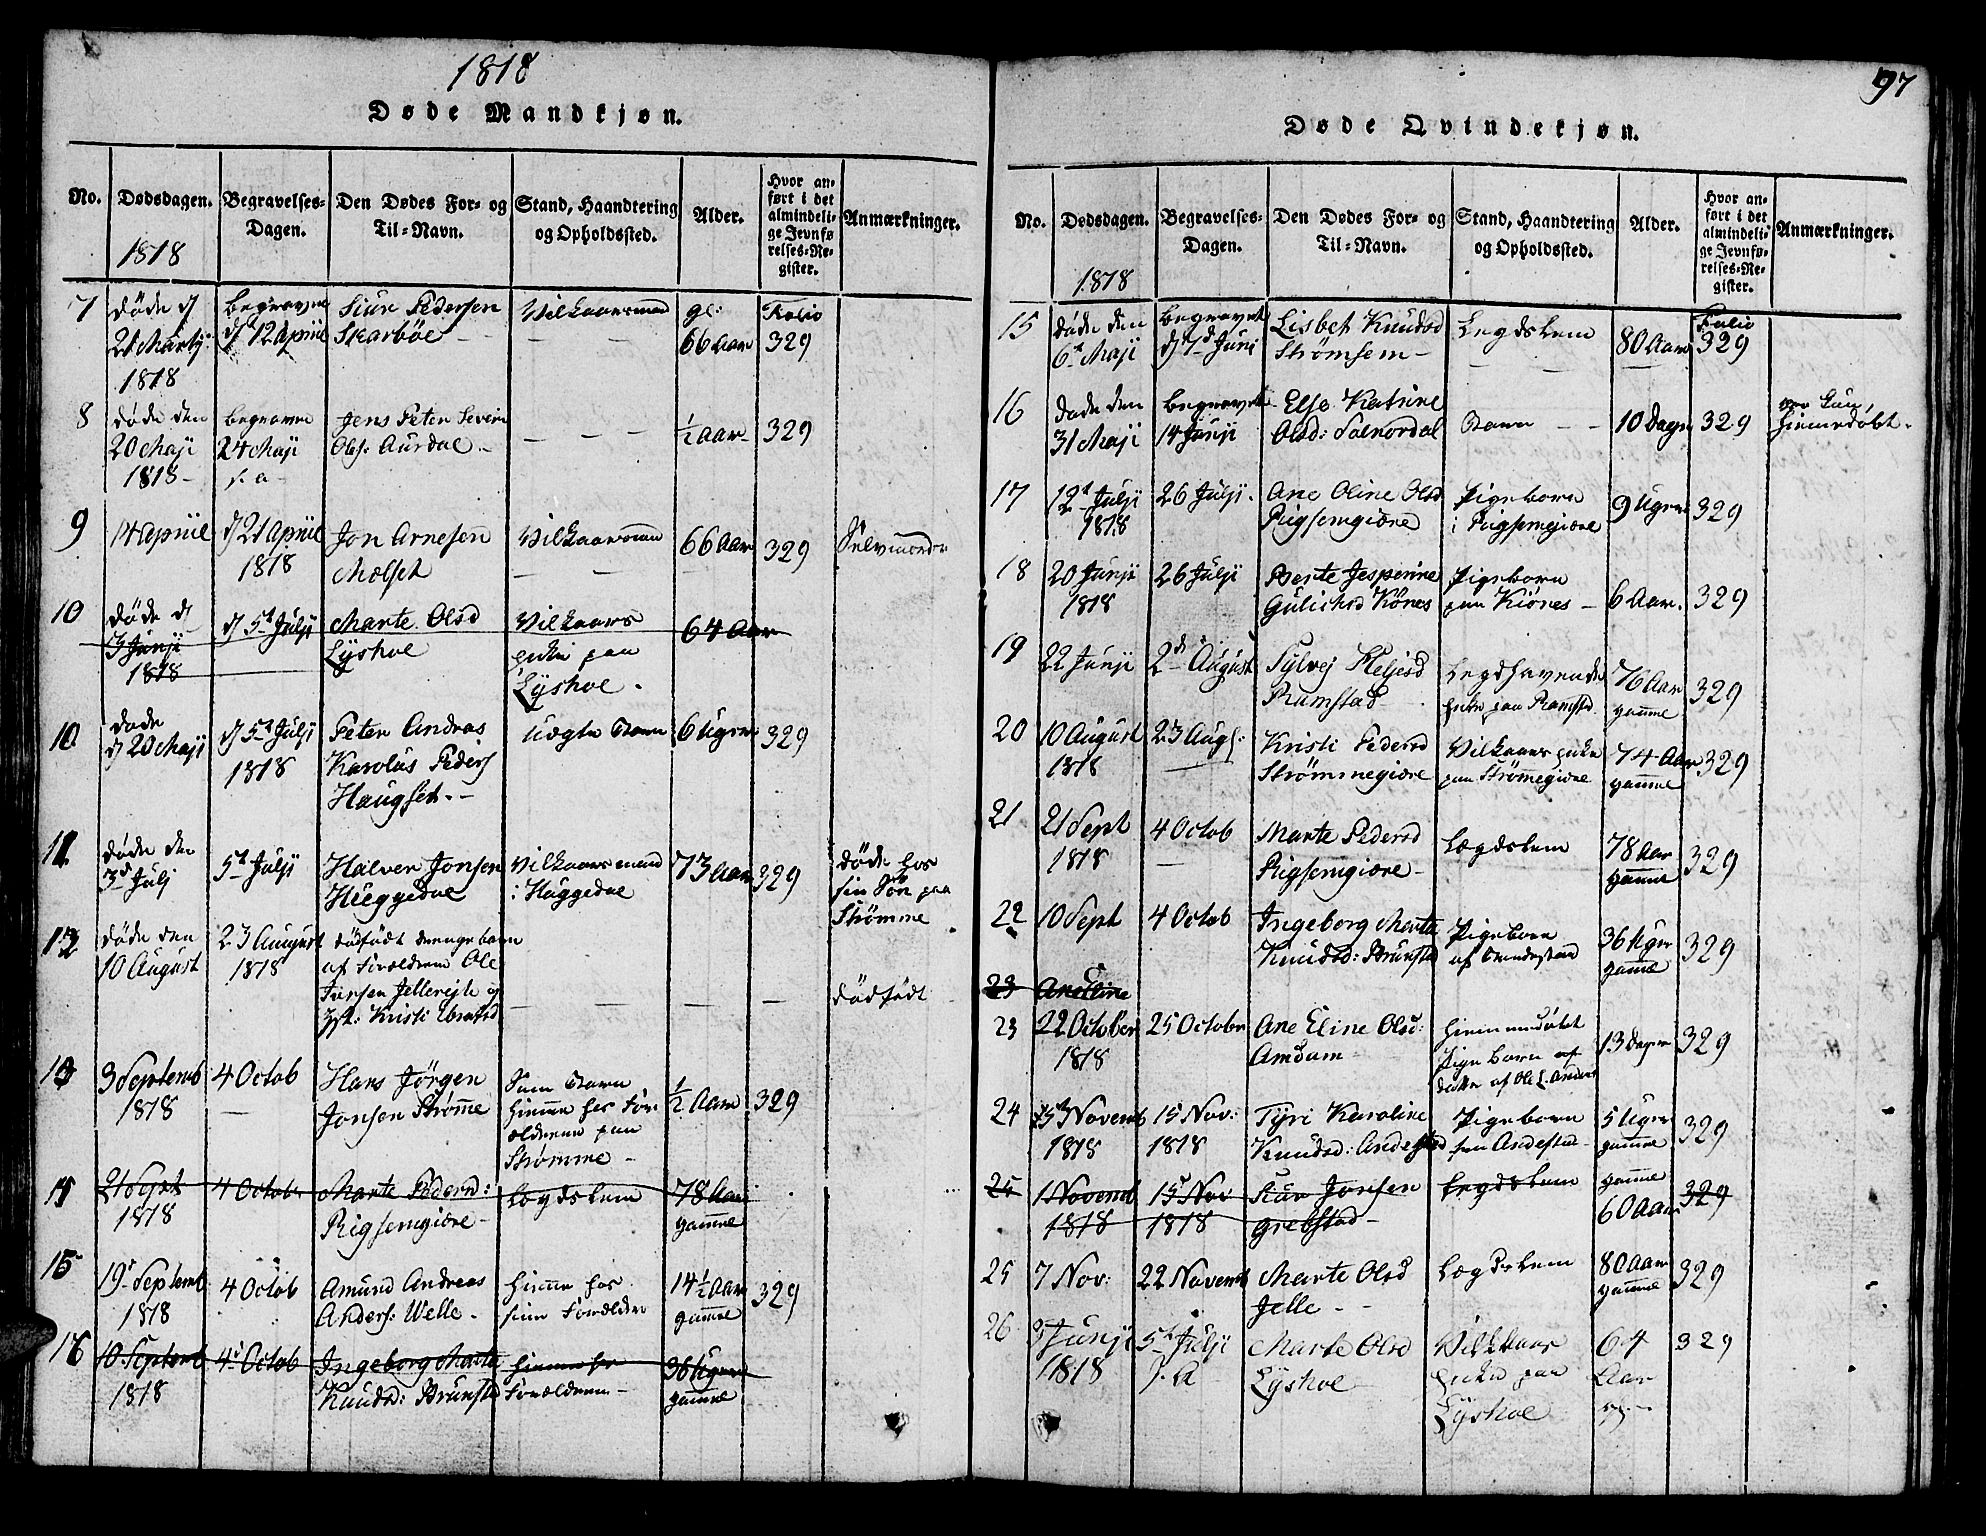 1818
Døde Mandkjøn.
No.
Dødsdagen.
1818
Begravelses-
Dagen.
Den Dødes For- og
Til-Navn.
Stand, Haandtering
og Opholdssted.
Alder.
Hvor an-
ført i det
almindeli-
ge Jevnfø
relses-Re-
gister.
Anmærkninger.
7
døde d
21 Martji
1818
begravne
d 12 Apriil
Siur Pedersen
Skarbøe
Vilkaarsmand
gl:
66 Aar
Folio
329
8
døde den
20 Maji
1818
begravne
24 Maji
s. a
Jens Peter Severin
Ols: Aurdal
½ Aar
329
9
14 Apriil
d 21 Apriil
1818
Jon Arnesen
Molset
Vilkaarsman
66 Aar
329
Selvmorder
10
døde d
3 Junji
1818
d 5t Julji
Marte Olsd
Lyshoe
Vilkaars
paa
Lyshoe
64 Aar
10
døde
d 20 Maji
d 5t Julji
1818
Peter Andreas
Karolus Peders
Haugset
uægte Barn
6 Uger
329
11
døde den
3d Julj
5t Julji
Halver Jonsen
Huggedal
Vilkaarsmand
i Huggedal
73 Aar
329
døde hos
sin Søn paa
Strømme
12
døde den
10 August
23 August
1818
dødfødt drengebarn
af Forældrene Ole
Jonsen Jelle og
Kristi
dødfødt
13
3 Septemb
1818
4 Octob
Hans Jörgen
Jonsen Strømme
Barn
hiemme hos For
ældrene paa
Strømme
½ Aar
329
21 Sept
1818
4 Octob
Marte Pedersd:
Rigsemgiære
Lægdslem
78 Aar
gamme
15
19 Septemb
1818
4 Octob
Amund Andreas
Anders: Welle
hieme hos
sine Forældre
14½ Aar
gamme
329
16
10 Septemb
1818
4 Octob
Ingeborg Marte
Knudsd: Brunstad
hiemme hos
Forældrene
36 Uger
gamme
97
Døde Qvindekjøn.
No.
Dødsdagen.
1818
Begravelses-
Dagen.
Den Dødes For- og
Til-Navn.
Stand, Haandtering
og Opholdssted.
Alder.
Hvor an-
ført i det
almindeli-
ge Jevnfø-
relses-Re-
gister.
Anmærkninger.
15
døde den
6 Maji
begravet
d 7d Juni
Lisbet Knudsd
Strømsem
Legdslem
80 Aar
Folio
329
16
døde den
31 Maji
begravet
14 Junji
Else Katrine
Olsd: Solnordal
Barn
10 Dage
329
hiemedøbt
17
12t Julji
1818
26 Julji
Ane Oline Olsd
Rigsemgiære
Pigebarn
i Rigsemgiære
9 Uger
329
18
20 Junji
1818
26 Julji
Berte Jesperine
Gulichsd Kønes
Pigebarn
paa Kiönes
6 Aar
329
19
22 Junji
2d August
Sylvej
Ramstad
paa Ramstad
76 Aar
gamme
329
20
10 August
1818
23 Aug:
Kristi Pedersd
Strømmegiære
Vilkaars
paa Strømegiære
74 Aar
gamme
329
21
21 Sept
1818
4 Octob
Marte Pedersd
Rigsemgiære
Lægdslem
78 Aar
gamme
329
22
10 Sept
4 Octob
Ingeborg Marta
Knudsd: Brunstad
Pigebarn
af Brunestad
36 Uger
gamme
329
23
Ane Eline
23
22 October
1818
25 Octobr
Ane Eline Olsd:
Amdam
hiemmedøbt
Pigebarn af
13 Dage
329
24
5t Novemb
1818
15 Nov:
1818
Tyri Karoline
Knudsd: Andestad
Pigebarn
Andestad
5 Uger
gamme
329
25
1 Novemb
1818
15 Nov
1818
Siur Jonsen
Grebstad
Legdslem
gamme
60 Aar
329
25
7 Nov:
22 Novemb
Marte Olsd
Jelle
Lægdslem
80 Aar
gamme
329
26
3 Junji
1818
5t Julji
s. A
Marte Olsd
Lyshoe
Vilkaar
paa
Lyshoe
64
Aar
329